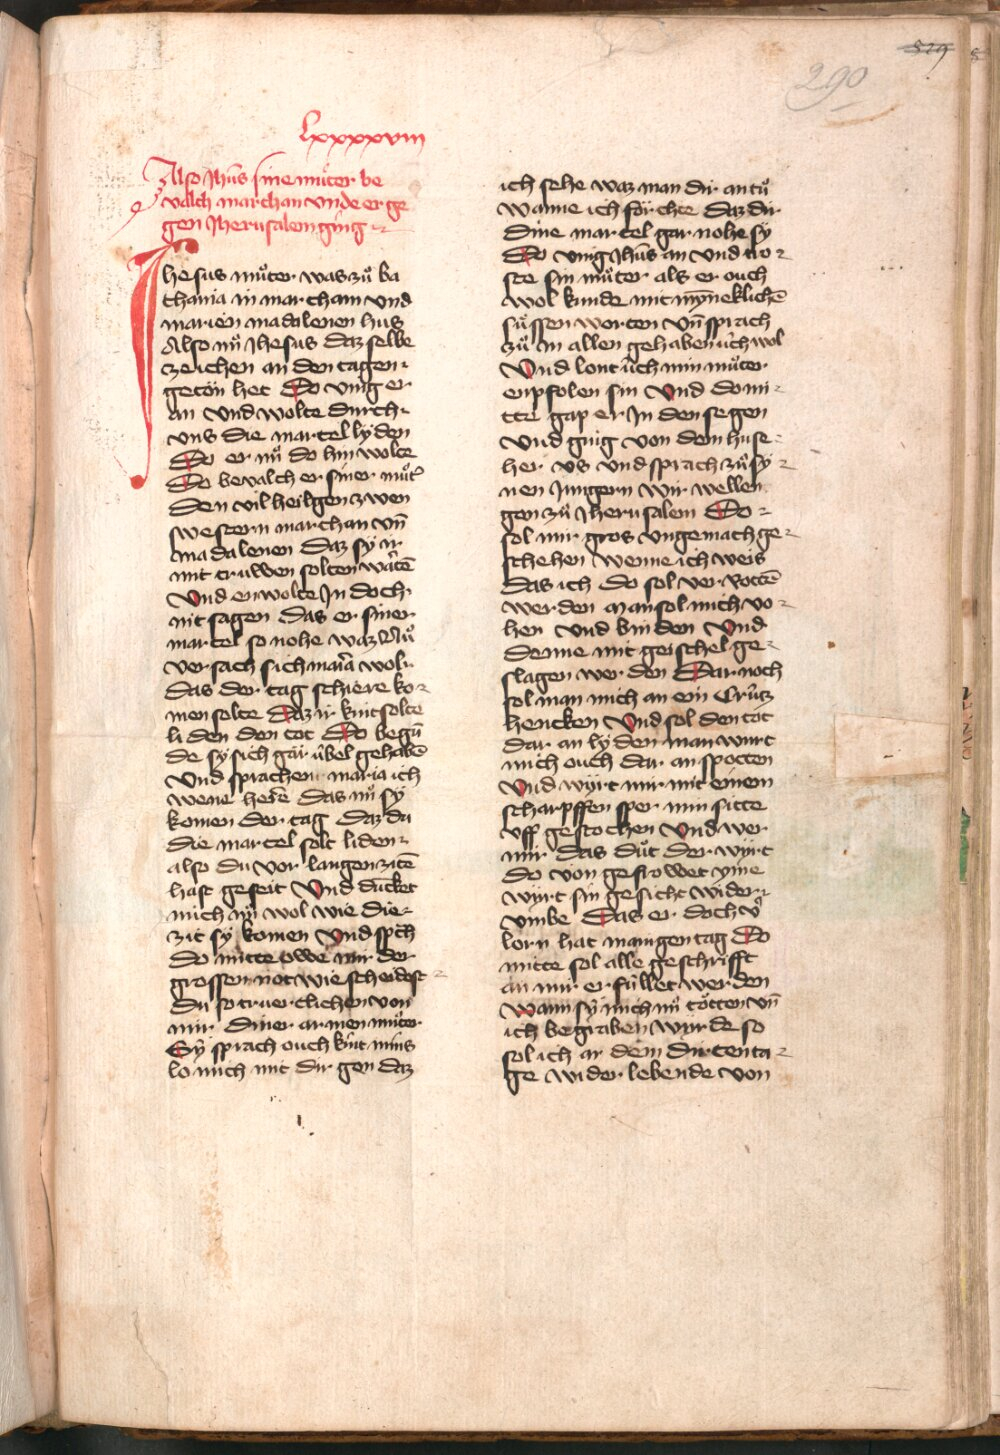 529
290
lxxxxviii
Also Jhūs sine můter be
valch marchan vnde er ge
gen Jherusalem ging
Ihesus můter was zů ba
thania in martham vnd
marien madalenen hus
Also nů Jhesus daz selbe
zeichen an den tagen
getön het Do vnig er
an vnd wolte durch
vns die martel lyden
Do er nů do hin wolte
Do bevalch er siner můt
den vil heilgen zwen
swestern marthan vn̄
madalenen daz sy ir
mit truwen solten wartē
Vnd en wolte In doch
nit sagen das er siner
martel so nohe waz Nů
versach sich maria wol
das der tag schiere ko
men solte Daz ir kint solte
liden den tot Do begū
de sy sich gar übel gehabē
Vnd sprachen maria ich
wene herre das nů sy
komen der tag daz du
die martel solt liden
also du vor langen zitē
hast geseit Vnd dūcket
mich nů wol wie die
zit sy komen Vnd sp̄ch
do mitte owe mir der
grossen not wie scheidest
du so truerclichen von
mir diner armen můter
Sy sprach ouch kint mins
lo mich mit dir gen daz
ich sehe waz man dir an tů
wanne ich förchte daz dir
dine martel gar nohe sy
Do vnig Jhūs an vnd tro
ste sin můter als er ouch
wol kunde mit mȳneklichē
süssen worten vn̄ sprach
zů in allen gehaben üch wol
Vnd lont üch min můter
enpfolen sin Vnd do mi
tte gap er In den segen
vnd ging von dem huse
her vs vnd sprach zů sy
nen Jungern wir wellen
gen zů Jherusalem Do
sol mir gros vngemach ge
schehen wenne ich weis
das ich do sol verrotten
werden man sol mich vo
hen vnd binden Vnd
denne mit geischel ge
slagen werden Dar noch
sol man mich an ein Crütz
hencken Vnd sol den tot
dar an lyden man wurt
mich ouch dar an spotten
Vnd wyrt mir mit einem
scharpffen sper min sitte
vff gestochen Vnd wer
mir das důt der wyrt
do von gefrowet yme
wyrt sin gesicht wider
vmbe Das er doch v̊
lorn hat manigen tag Do
mitte sol alle geschrifft
an mir erfüllet werden
wann sy mich nů tötten vn̄
ich begraben wurde so
sol ich ar dem dirten ta
ge wider lebende von